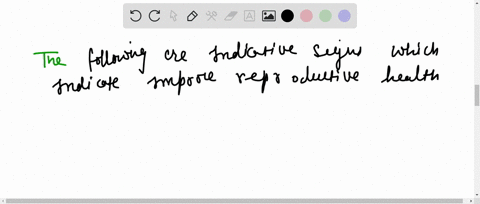 The following are indicative signs which
indicate improve reproductive health